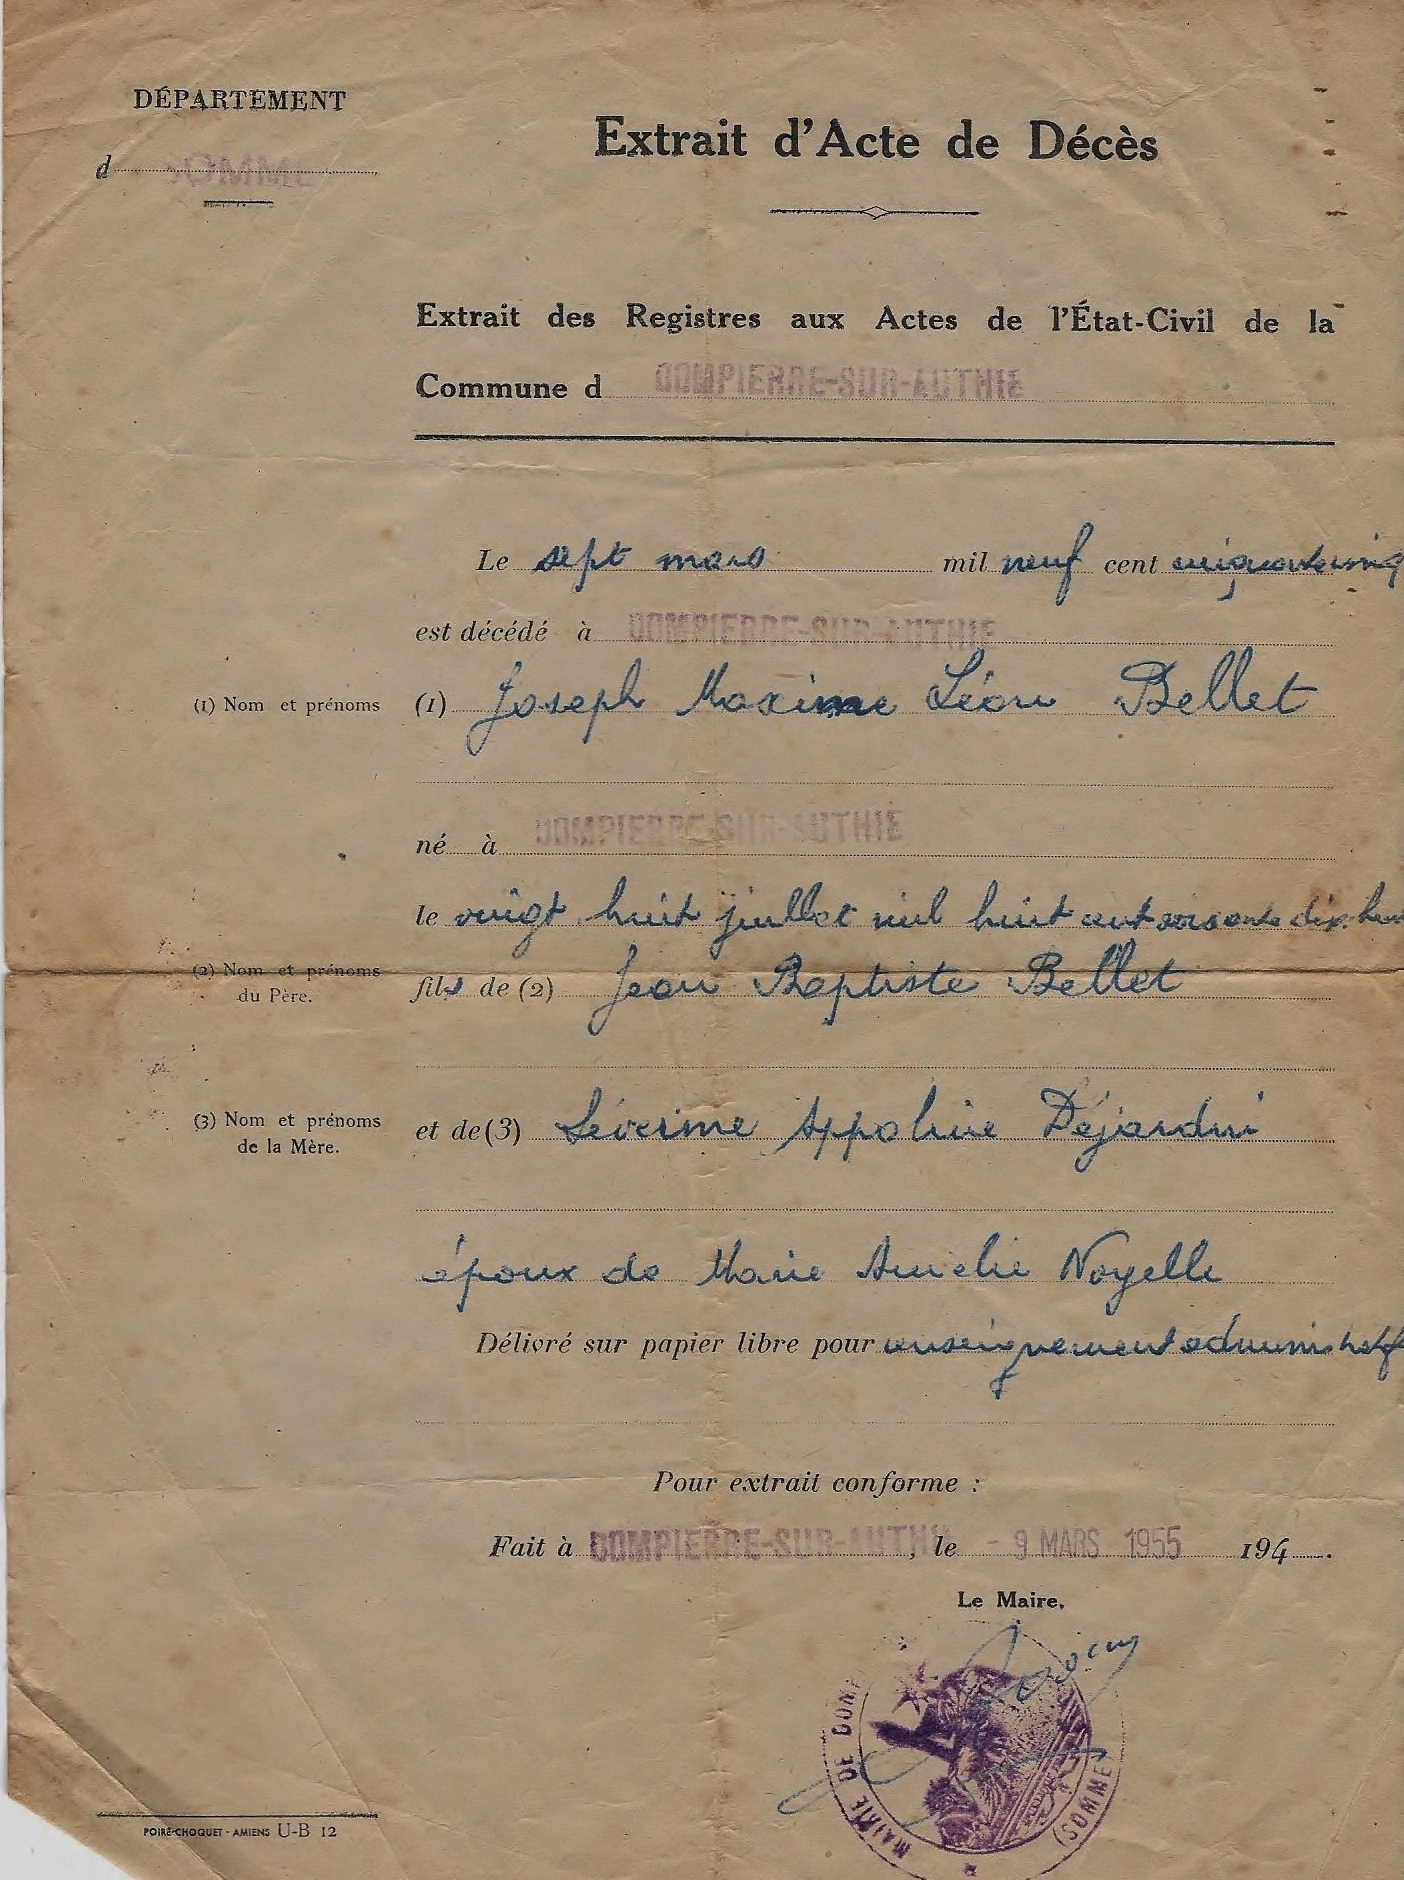 DÉPARTEMENT
d SOMME
Extrait d'Acte de Décès
Extrait des Registres aux Actes de l'État-Civil de la
Commune d DOMPIERRE-SUR-AUTHIE
Le sept mars mil neuf cent cinquante cinq
est décédé à DOMPIERRE-SUR-AUTHIE
(1) Nom et prénoms
(1) Joseph Maxime Léon Bellet
né à DOMPIERRE-SUR-AUTHIE
le vingt huit juillet mil huit cent soixante dix-huit
(2) Nom et prénoms
du Père.
fils de (2) Jean Baptiste Bellet
(3) Nom et prénoms
de la Mère.
et de (3) Séverine Appoline Déjardin
époux de Marie Amélie Noyelle
Délivré sur papier libre pour renseignement administratif
Pour extrait conforme :
Fait à DOMPIERRE-SUR-AUTHIE, le - 9 MARS 1955 194 .
Le Maire,
MAIRIE DE DOMP
(SOMME)
POIRÉ-CHOQUET - AMIENS U-B 12